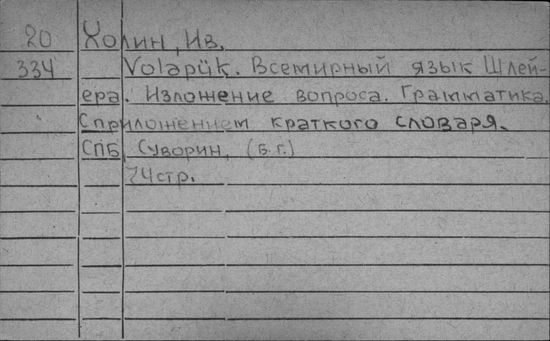 20 Холин, Ив.
334 Volapük. Всемирный язык Шлей-
ера. Изложение вопроса. Грамматика.
С приложением краткого словаря.
СПБ, Суворин, (б.г.)
74 стр.